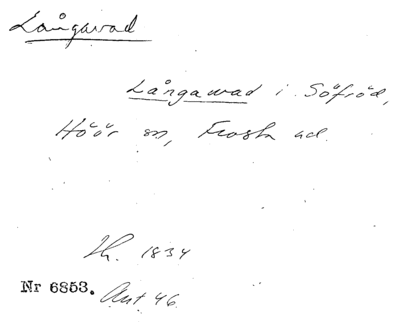 Långavad
Långawad i Söfröd,
Höör sn, Frosta ad.
Th. 1834
Nr 6853. Ant 46